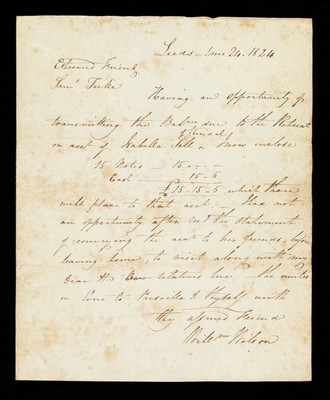 Leeds 24. 1824
Esteemed Friend
Saml Tuke
Having an opportunity of
transmitting the Balce due to the Retreat
on acct of Isabella I now enclose
15 Notes — 15 - " -
Cash 15 - 6
£15-15-6 which thou
will place to that acct. — Had not
an opportunity after recd the statement
of conveying the acct to her friends, before
leaving home, to visit along with my
Dear relatives here — She unites
in Love to & thyself with
thy assured Friend
Wilson